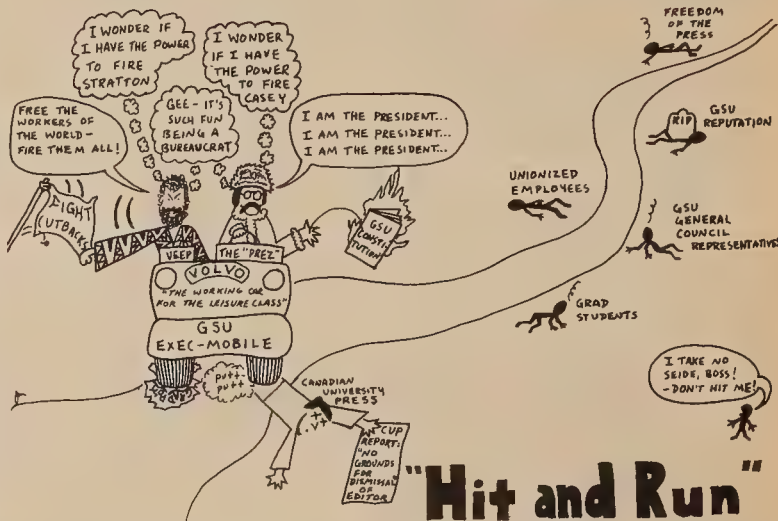 I WONDER IF
I HAVE THE POWER
TO FIRE
STRATTON
I WONDER
IF I HAVE
THE POWER
TO FIRE
CASEY
FREE THE
WORKERS OF
THE WORLD-
FIRE THEM ALL!
GEE - IT'S
SUCH FUN
BEING A
BUREAUCRAT
I AM THE PRESIDENT...
I AM THE PRESIDENT...
I AM THE PRESIDENT...
FIGHT
CUTBACKS
GSU
CONSTI-
TUTION
VEEP
THE "PREZ"
VOLVO
"THE WORKING CAR
FOR THE LEISURE CLASS"
GSU
EXEC-MOBILE
putt-
putt
CANADIAN
UNIVERSITY
PRESS
CUP
REPORT:
"NO
GROUNDS
FOR
DISMISSAL"
OF
EDITOR
FREEDOM
OF THE
PRESS
RIP
GSU
REPUTATION
UNIONIZED
EMPLOYEES
GSU
GENERAL
COUNCIL
REPRESENTATIVES
GRAD
STUDENTS
I TAKE NO
SEIDE, BOSS!
-DON'T HIT ME!
"Hit and Run"